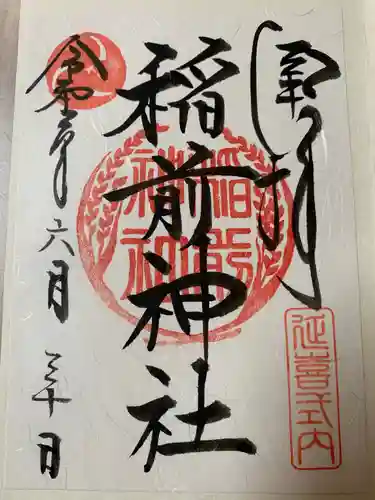 奉拝
延喜式内
稲前神社
稲前
神社
令和六年六月三十日